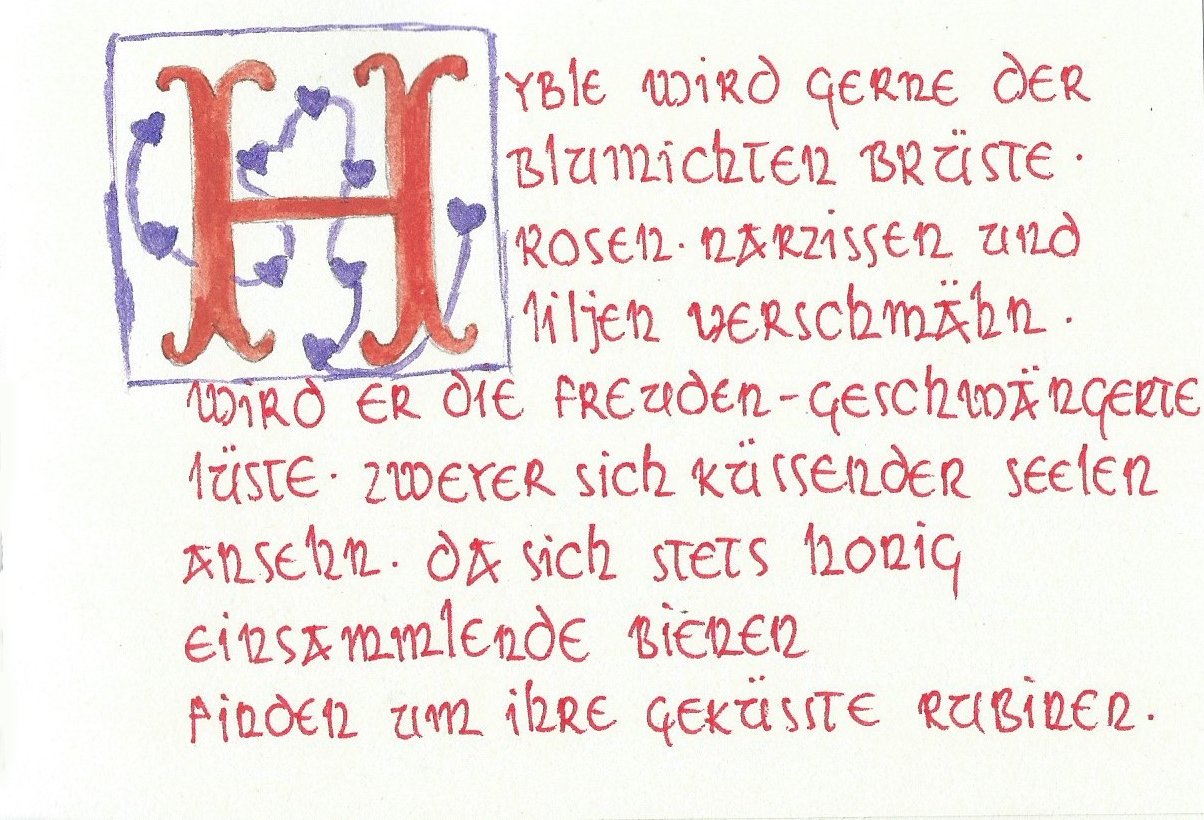 Hyble wird gerne der
blumichten brüste ·
rosen · narzissen und
liljen verschmähn .
wird er die freuden-geschwängerte
lüste · zweyer sich küssender seelen
ansehn . da sich stets honig
einsammlende bienen
finden um ihre geküsste rubinen .